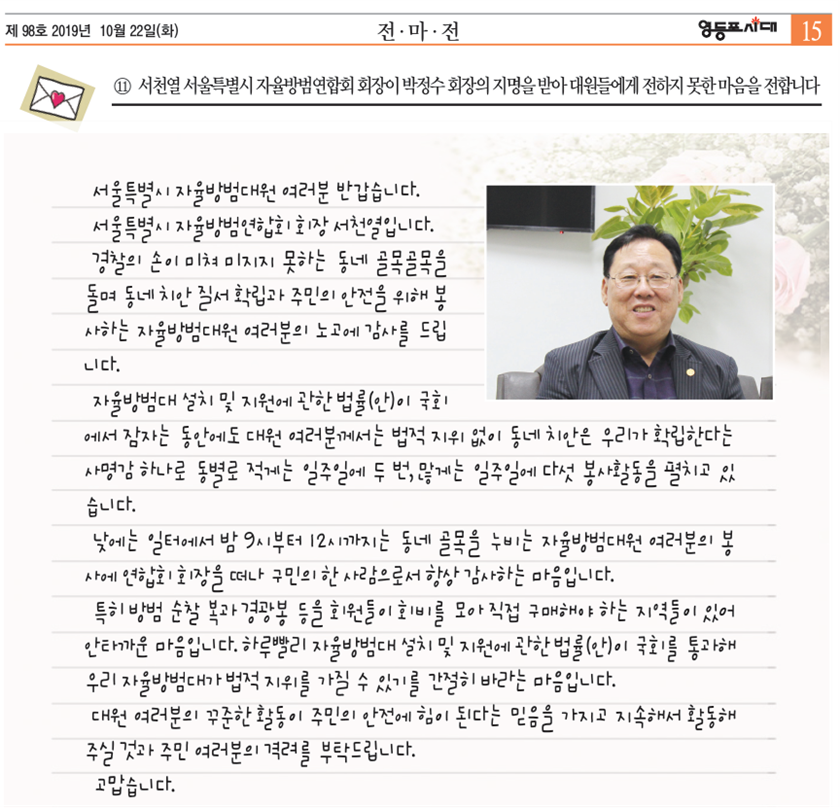 제 98호 2019년 10월 22일(화)
전·마·전
영등포시대
15
⑪ 서천열 서울특별시 자율방범연합회 회장이 박정수 회장의 지명을 받아 대원들에게 전하지 못한 마음을 전합니다
서울특별시 자율방범대원 여러분 반갑습니다.
서울특별시 자율방범연합회 회장 서천열입니다.
경찰의 손이 미쳐 미치지 못하는 동네 골목골목을
돌며 동네 치안 질서 확립과 주민의 안전을 위해 봉
사하는 자율방범대원 여러분의 노고에 감사를 드립
니다.
자율방범대 설치 및 지원에 관한 법률(안)이 국회
에서 잠자는 동안에도 대원 여러분께서는 법적 지위 없이 동네 치안은 우리가 확립한다는
사명감 하나로 동별로 적게는 일주일에 두 번, 많게는 일주일에 다섯 봉사활동을 펼치고 있
습니다.
낮에는 일터에서 밤 9시부터 12시까지는 동네 골목을 누비는 자율방범대원 여러분의 봉
사에 연합회 회장을 떠나 구민의 한 사람으로서 항상 감사하는 마음입니다.
특히 방범 순찰 복과 경광봉 등을 회원들이 회비를 모아 직접 구매해야 하는 지역들이 있어
안타까운 마음입니다. 하루빨리 자율방범대 설치 및 지원에 관한 법률(안)이 국회를 통과해
우리 자율방범대가 법적 지위를 가질 수 있기를 간절히 바라는 마음입니다.
대원 여러분의 꾸준한 활동이 주민의 안전에 힘이 된다는 믿음을 가지고 지속해서 활동해
주실 것과 주민 여러분의 격려를 부탁드립니다.
고맙습니다.